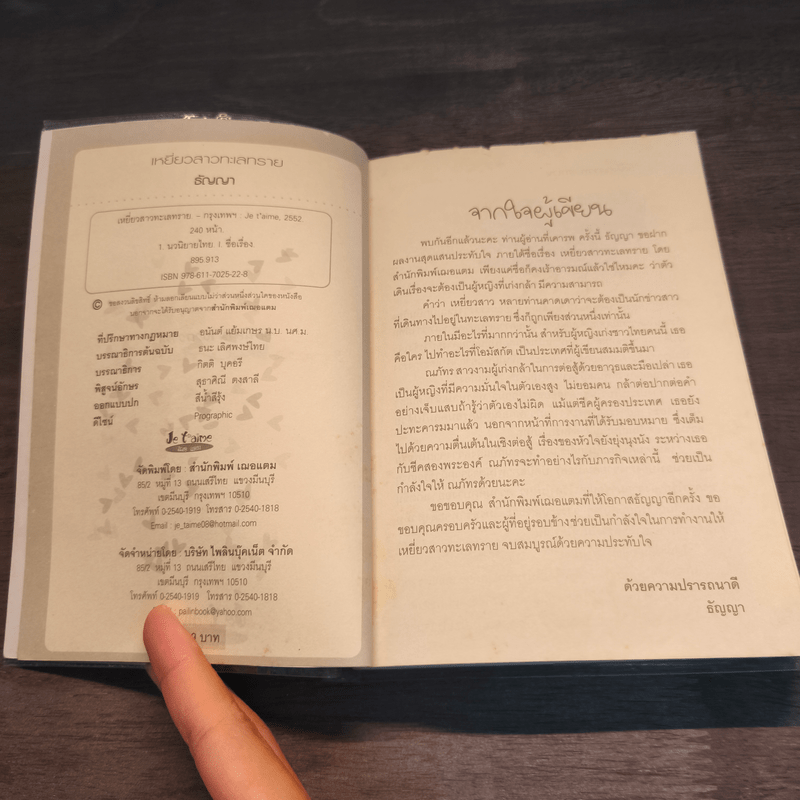 เหยี่ยวสาวทะเลทราย
ธัญญา
เหยี่ยวสาวทะเลทราย. - กรุงเทพฯ : Je t'aime, 2552.
240 หน้า.
1. นวนิยายไทย I. ชื่อเรื่อง
895.913
ISBN 978-611-7025-22-8
© ขอสงวนลิขสิทธิ์ ห้ามลอกเลียนแบบไม่ว่าส่วนหนึ่งส่วนใดของหนังสือ
นอกจากจะได้รับอนุญาตจากสำนักพิมพ์เฌอแตม
ที่ปรึกษาทางกฎหมาย อนันต์ แย้มเกษร น.บ. นศ.ม.
บรรณาธิการต้นฉบับ ธนะ เลิศพงษ์ไทย
บรรณาธิการ กิตติ บุคอรี
พิสูจน์อักษร สุธาศิณี ดงสาลี
ออกแบบปก สีน้ำสีรุ้ง
ดีไซน์ Prographic
Je t'aime
จัดพิมพ์โดย : สำนักพิมพ์ เฌอแตม
85/2 หมู่ที่ 13 ถนนเสรีไทย แขวงมีนบุรี
เขตมีนบุรี กรุงเทพฯ 10510
โทรศัพท์ 0-2540-1919 โทรสาร 0-2540-1818
Email : je_taime08@hotmail.com
จัดจำหน่ายโดย : บริษัท ไพลินบุ๊คเน็ต จำกัด
85/2 หมู่ที่ 13 ถนนเสรีไทย แขวงมีนบุรี
เขตมีนบุรี กรุงเทพฯ 10510
โทรศัพท์ 0-2540-1919 โทรสาร 0-2540-1818
pailinbook@yahoo.com
บาท
จากใจผู้เขียน
พบกันอีกแล้วนะคะ ท่านผู้อ่านที่เคารพ ครั้งนี้ ธัญญา ขอฝาก
ผลงานสุดแสนประทับใจ ภายใต้ชื่อเรื่อง เหยี่ยวสาวทะเลทราย โดย
สำนักพิมพ์เฌอแตม เพียงแค่ชื่อก็คงเร้าอารมณ์แล้วใช่ไหมคะ ว่าตัว
เดินเรื่องจะต้องเป็นผู้หญิงที่เก่งกล้า มีความสามารถ
คำว่า เหยี่ยวสาว หลายท่านคาดเดาว่าจะต้องเป็นนักข่าวสาว
ที่เดินทางไปอยู่ในทะเลทราย ซึ่งก็ถูกเพียงส่วนหนึ่งเท่านั้น
ภายในมีอะไรที่มากกว่านั้น สำหรับผู้หญิงเก่งชาวไทยคนนี้ เธอ
คือใคร ไปทำอะไรที่โอมัสกัต เป็นประเทศที่ผู้เขียนสมมติขึ้นมา
ณภัทร สาวงามผู้เก่งกล้าในการต่อสู้ด้วยอาวุธและมือเปล่า เธอ
เป็นผู้หญิงที่มีความมั่นใจในตัวเองสูง ไม่ยอมคน กล้าต่อปากต่อคำ
อย่างเจ็บแสบถ้ารู้ว่าตัวเองไม่ผิด แม้แต่ชีคผู้ครองประเทศ เธอยัง
ปะทะคารมมาแล้ว นอกจากหน้าที่การงานที่ได้รับมอบหมาย ซึ่งเต็ม
ไปด้วยความตื่นเต้นในเชิงต่อสู้ เรื่องของหัวใจยังยุ่งนุงนัง ระหว่างเธอ
กับชีคสองพระองค์ ณภัทรจะทำอย่างไรกับภารกิจเหล่านี้ ช่วยเป็น
กำลังใจให้ ณภัทรด้วยนะคะ
ขอขอบคุณ สำนักพิมพ์เฌอแตมที่ให้โอกาสธัญญาอีกครั้ง ขอ
ขอบคุณครอบครัวและผู้ที่อยู่รอบข้างช่วยเป็นกำลังใจในการทำงานให้
เหยี่ยวสาวทะเลทราย จบสมบูรณ์ด้วยความประทับใจ
ด้วยความปรารถนาดี
ธัญญา